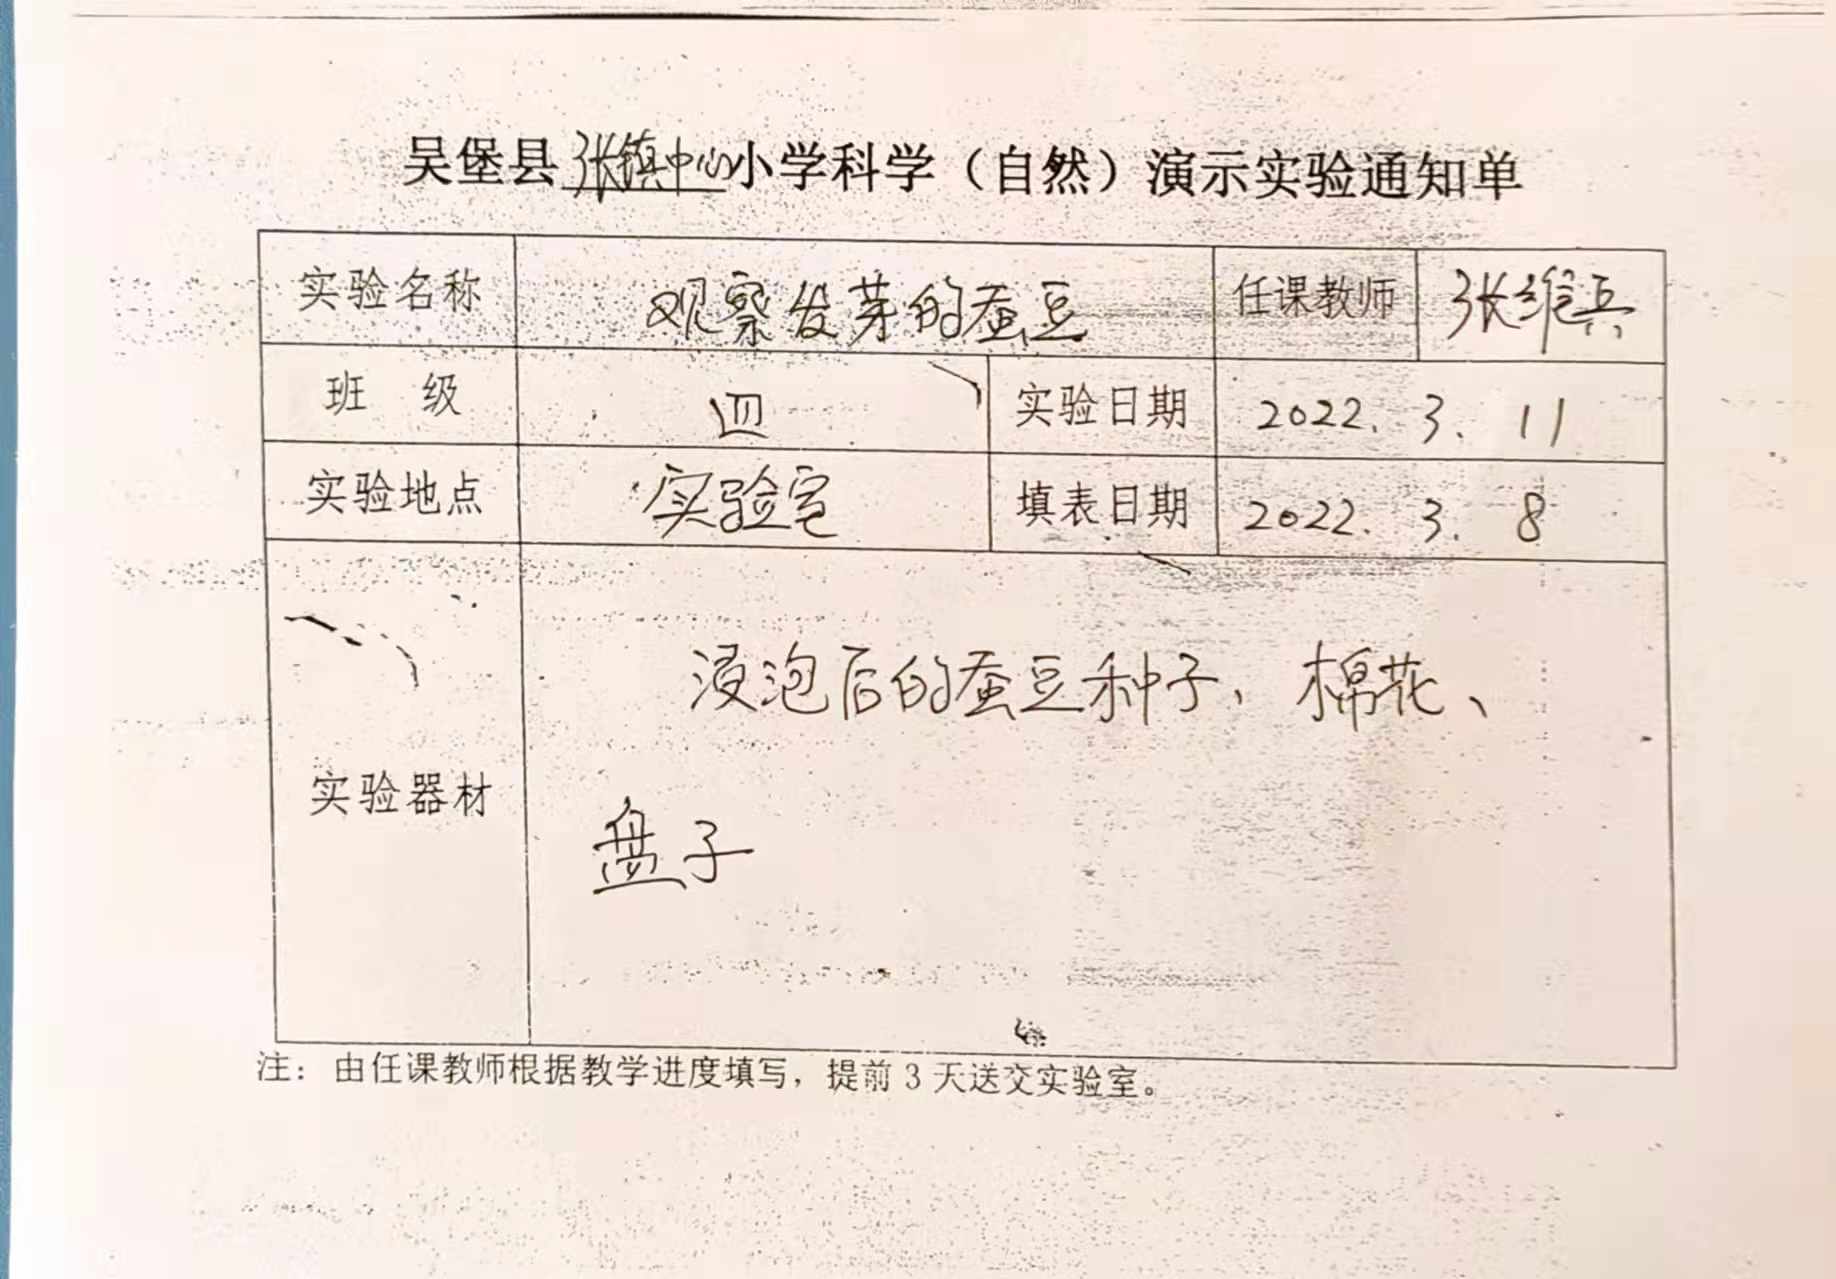 吴堡县张镇中心小学科学（自然）演示实验通知单
实验名称 观察发芽的蚕豆 任课教师 张维兵
班 级 四 实验日期 2022. 3. 11
实验地点 实验室 填表日期 2022. 3. 8
实验器材 浸泡后的蚕豆种子、棉花、
盘子
注：由任课教师根据教学进度填写，提前 3 天送交实验室。